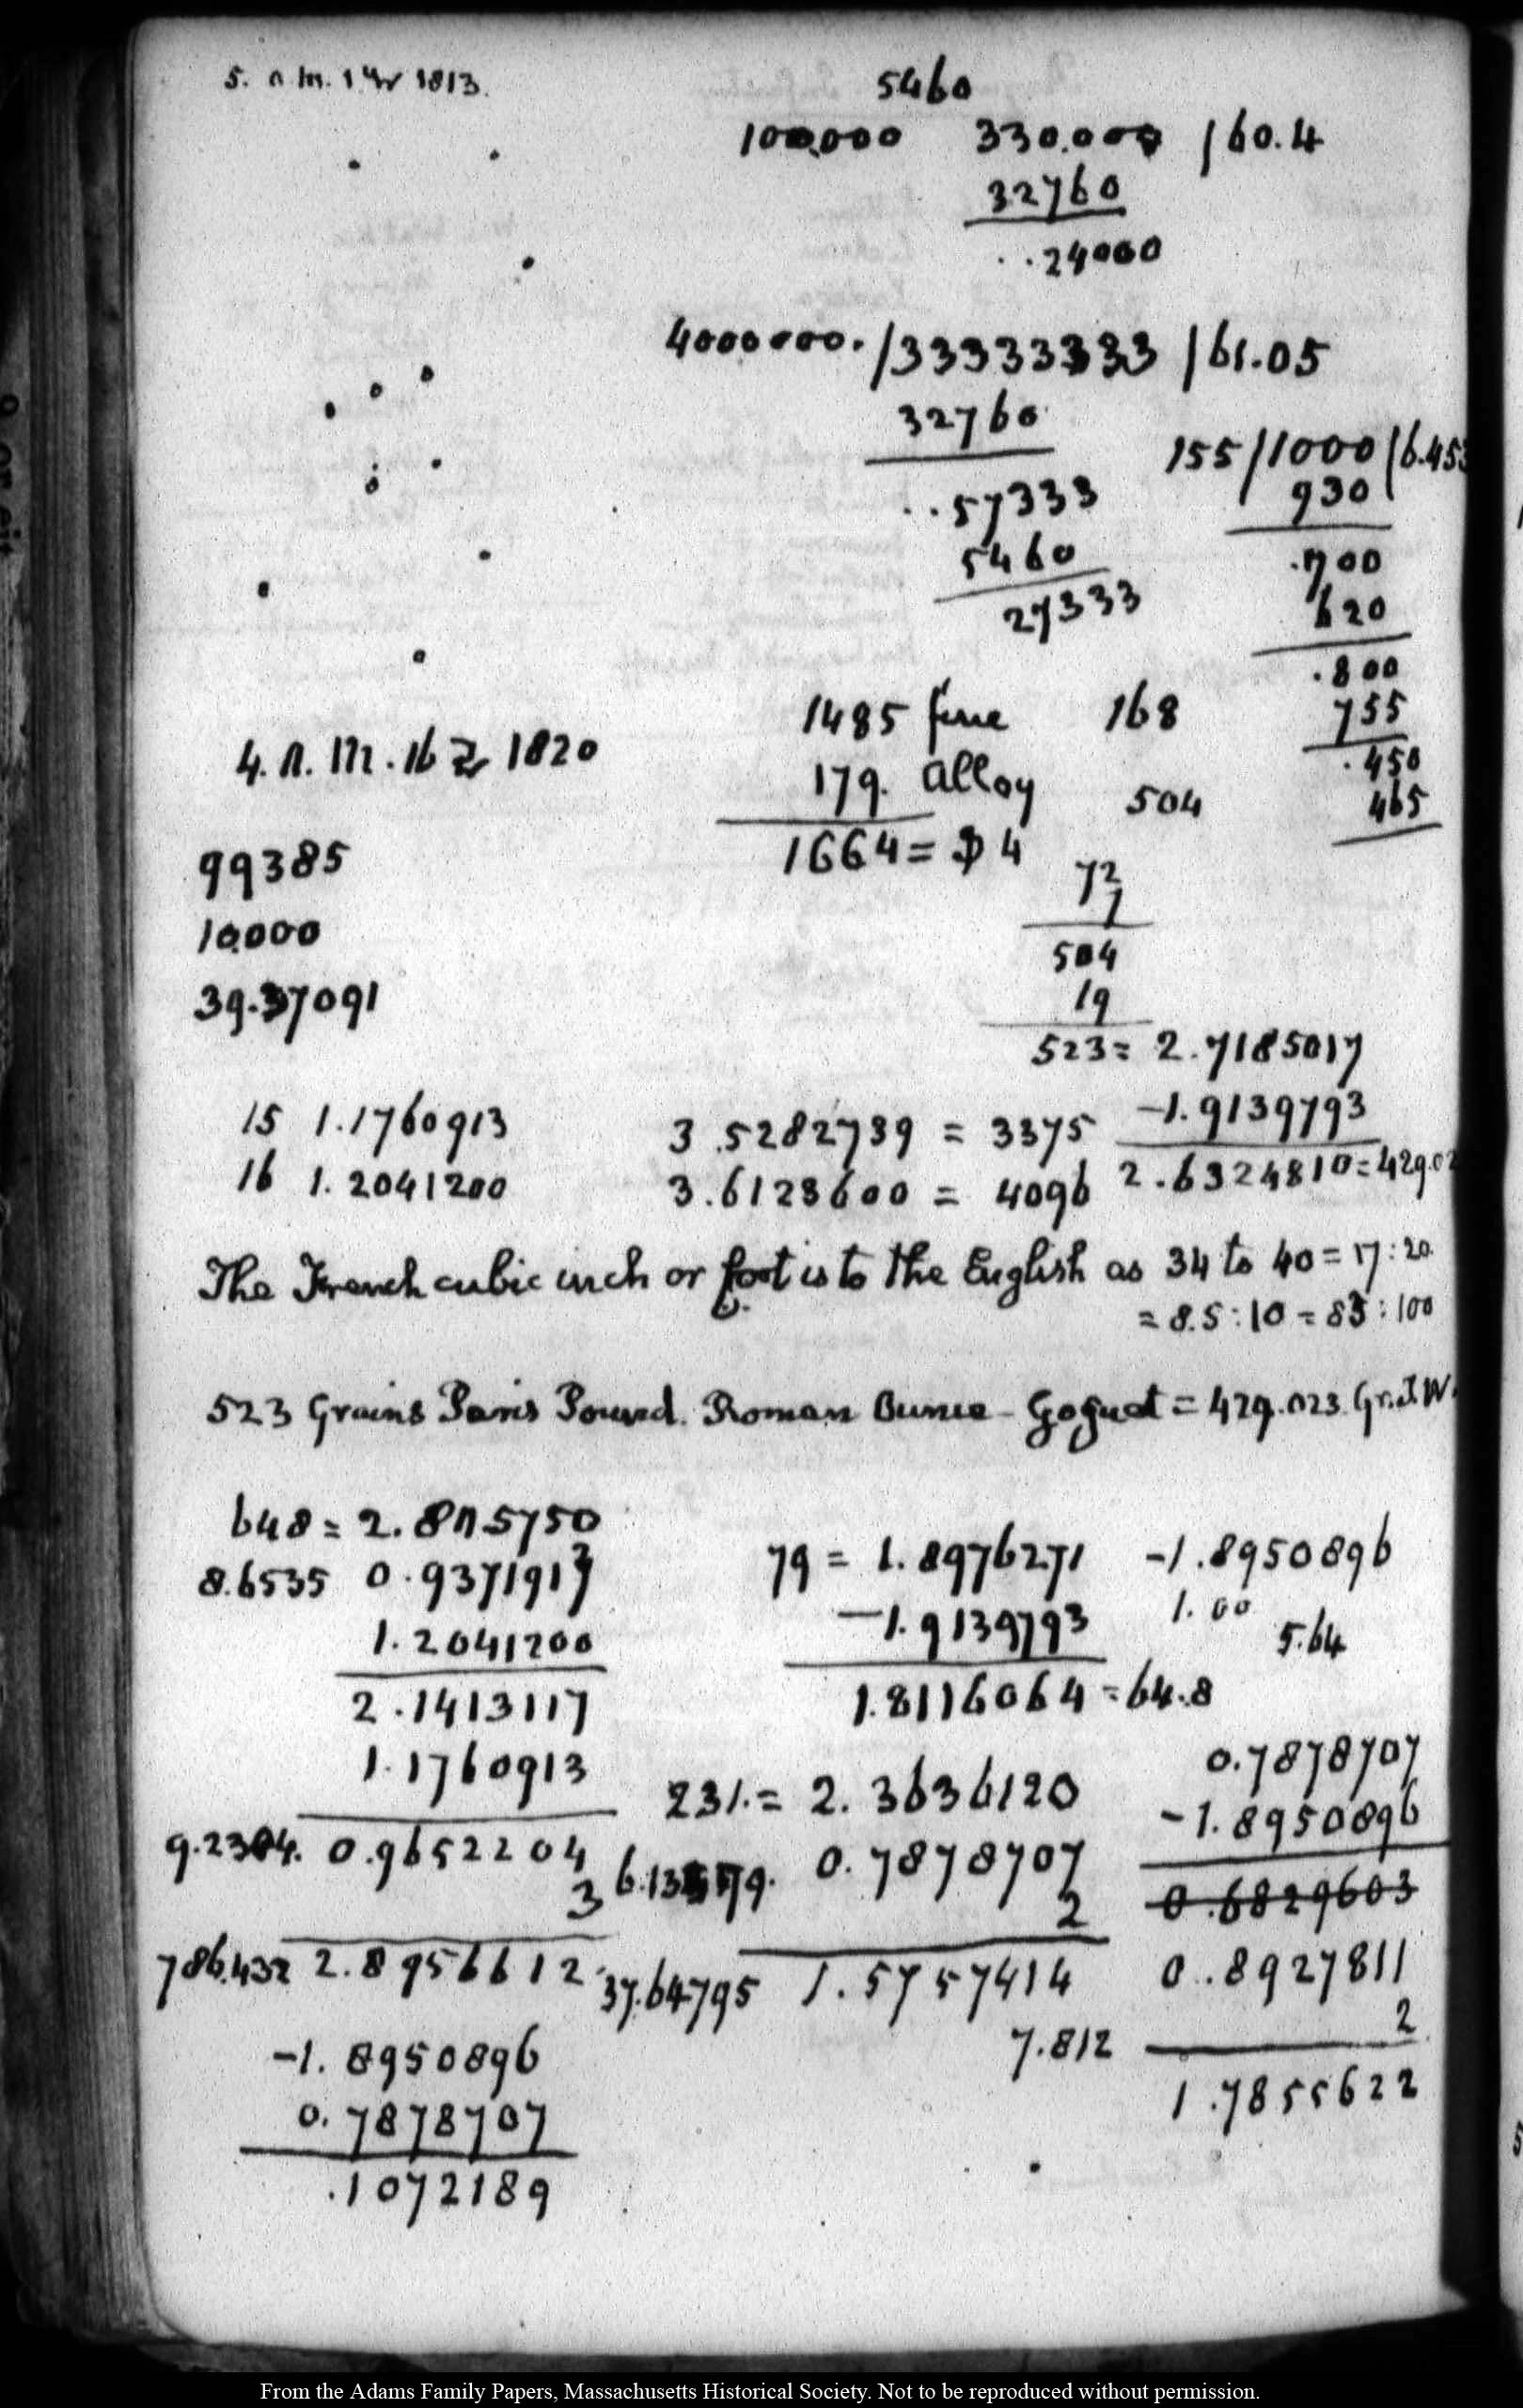 5. a.m. 1 1813.
5460
100,000 330.000 /60.4
32760
..24000
4000000. /33333333 /61.05
32760
..57333
5460
27333
155/1000/6.453
930
.700
620
.800
755
.450
465
4. A. M. 16 1820
1485 fine 168
179. alloy 504
1664 = $4
72
7
504
19
523 = 2.7185017
-1.9139793
2.6324810 = 429.02
99385
10,000
39.37091
15 1.1760913 3.5282739 = 3375
16 1.2041200 3.6123600 = 4096
The French cubic inch or foot is to the English as 34 to 40 = 17:20.
= 8.5:10 = 85:100
523 Grains Paris Pound. Roman Ounce - Goguet = 429.023 Gr.T.W.
648 = 2.8115750
8.6535 0.9371917
1.2041200
2.1413117
1.1760913
9.2304. 0.9652204
3
786.432 2.8956612
-1.8950896
0.7878707
.1072189
79 = 1.8976271
-1.9139793
1.8116064 = 64.8
-1.8950896
1.00
5.64
231. = 2.3636120
0.7878707
2
37.64795 1.5757414
0.7878707
-1.8950896
0.6829603
0.8927811
2
7.812
1.7855622
From the Adams Family Papers, Massachusetts Historical Society. Not to be reproduced without permission.